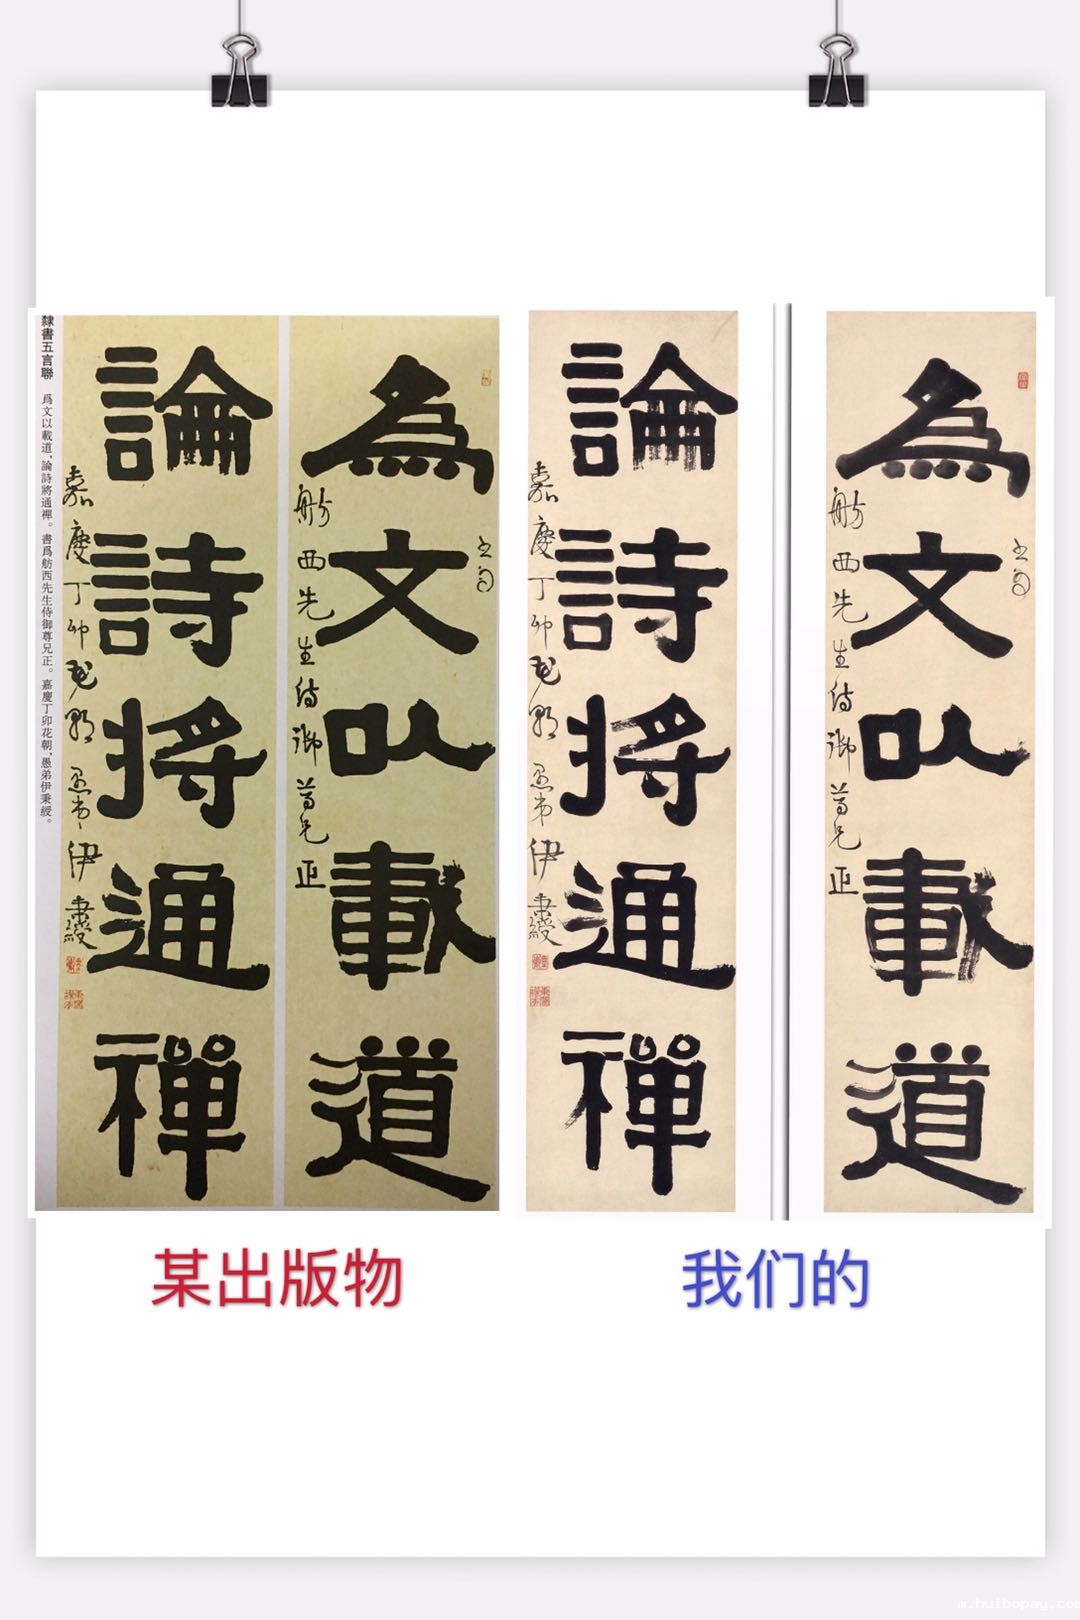 隸書五言聯 爲文以載道,論詩將通禪。書爲舫西先生侍御尊兄正。嘉慶丁卯花朝,愚弟伊秉綬。
為文以載道
舫西先生侍御尊兄正
論詩將通禪
嘉慶丁卯花朝愚弟伊秉綬
為文以載道
舫西先生侍御尊兄正
論詩將通禪
嘉慶丁卯花朝愚弟伊秉綬
某出版物
我们的
m.huibopay.com